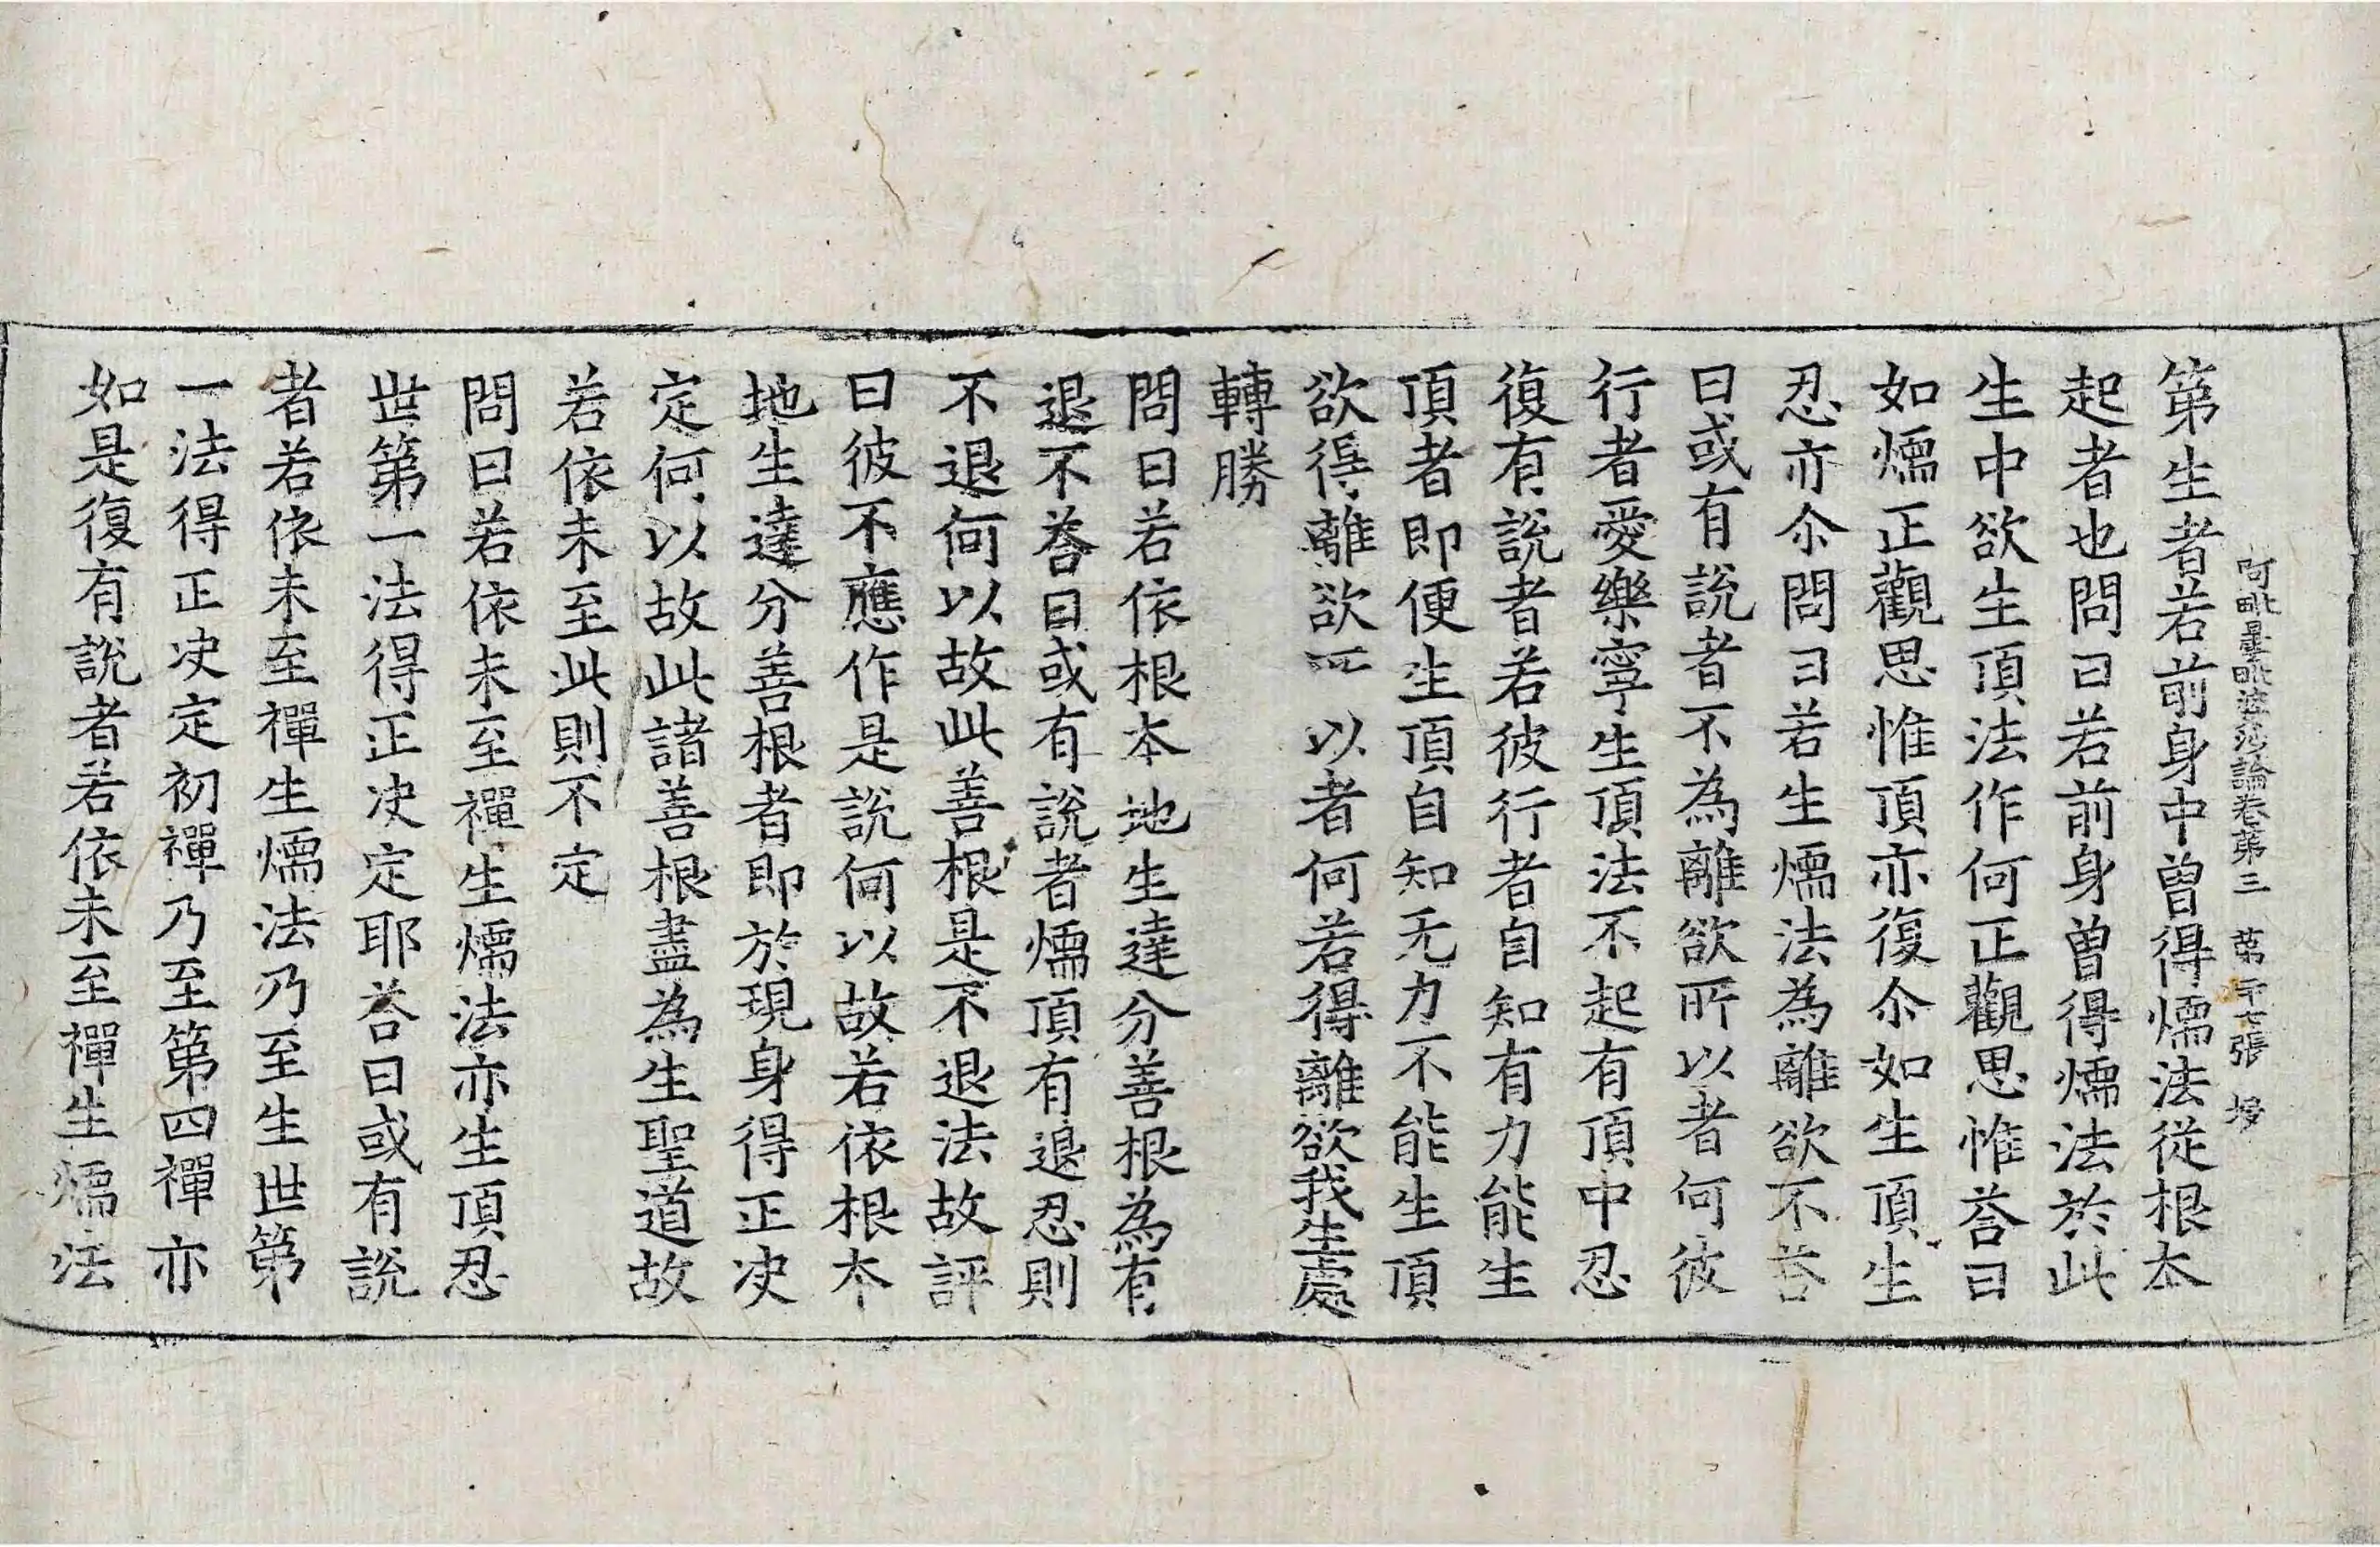 阿毗曇毗婆沙論卷第三 第二十七張
第生者若前身中曾得煗法從根本
起者也問曰若前身曾得煗法於此
生中欲生頂法作何正觀思惟荅曰
如煗正觀思惟頂亦復尒如生頂生
忍亦尒問曰若生煗法為離欲不荅
曰或有說者不為離欲所以者何彼
行者愛樂寧生頂法不起有頂中忍
復有說者若彼行者自知有力能生
頂者即便生頂自知无力不能生頂
欲得離欲所以者何若得離欲我生處
轉勝
問曰若依根本地生達分善根為有
退不荅曰或有說者煗頂有退忍則
不退何以故此善根是不退法故評
曰彼不應作是說何以故若依根本
地生達分善根者即於現身得正决
定何以故此諸善根盡為生聖道故
若依未至此則不定
問曰若依未至禪生煗法亦生頂忍
世第一法得正决定耶荅曰或有說
者若依未至禪生煗法乃至生世第
一法得正决定初禪乃至第四禪亦
如是復有說者若依未至禪生煗法